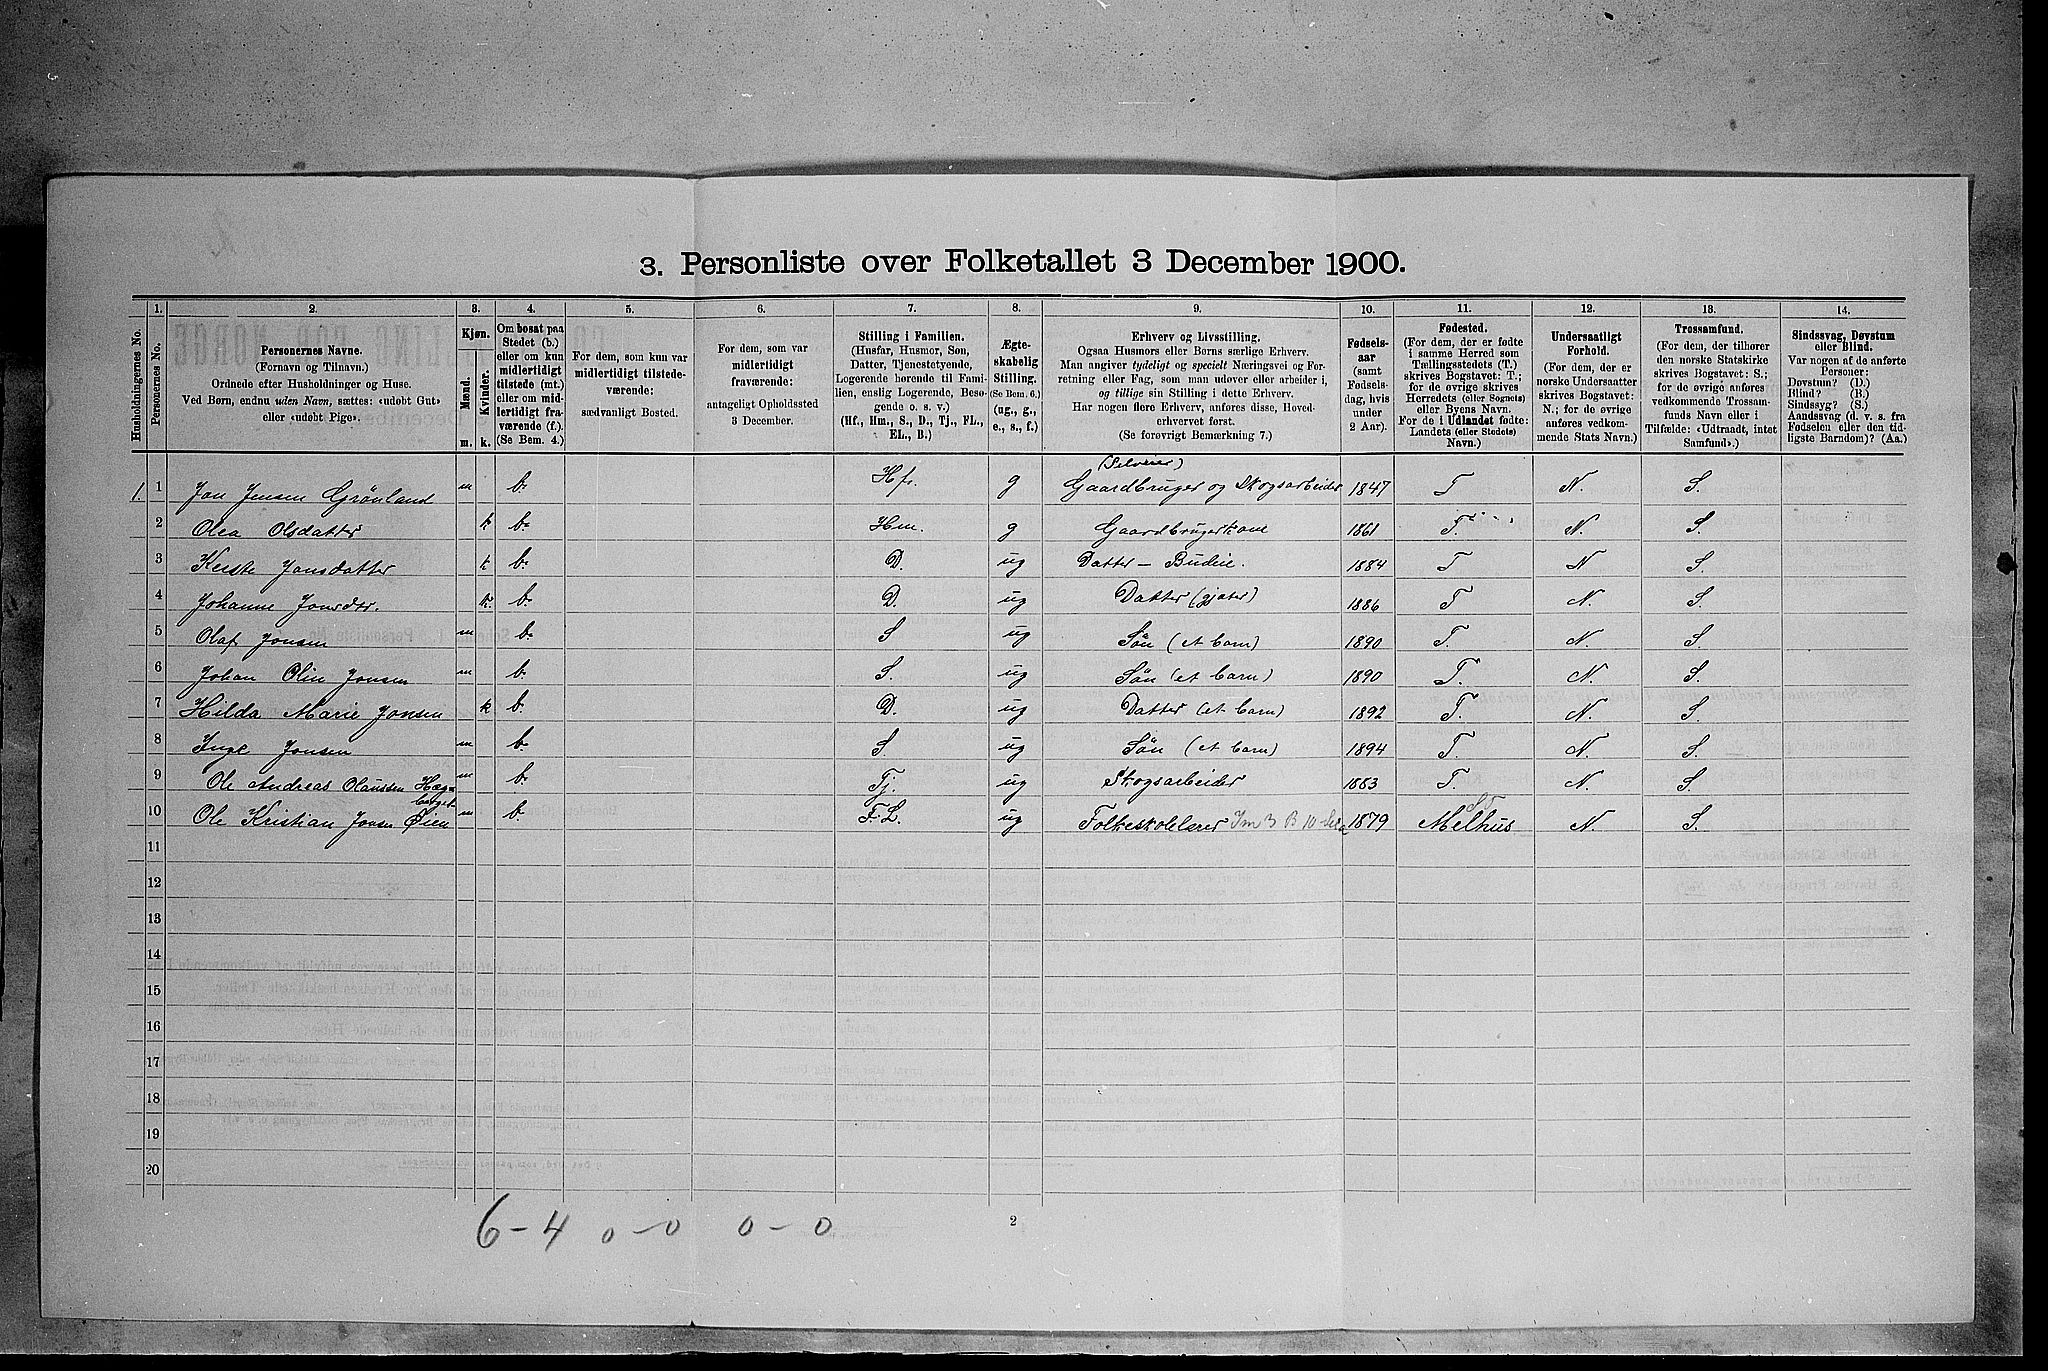 3. Personliste over Folketallet 3 December 1900.
Husholdningernes No.
1.
Personernes No.
2.
Personernes Navne.
(Fornavn og Tilnavn.)
Ordnede efter Husholdninger og Huse.
Ved Børn, endnu uden Navn, sættes: «udøbt Gut»
eller «udøbt Pige».
3.
Kjøn.
Mænd.
Kvinder.
m.
k.
4.
Om bosat paa
Stedet (b.)
eller om kun
midlertidigt
tilstede (mt.)
eller om mid-
lertidigt fra-
værende (f.).
(Se Bem. 4.)
5.
For dem, som kun var
midlertidigt tilstede-
værende:
sædvanligt Bosted.
6.
For dem, som var
midlertidigt
fraværende:
antageligt Opholdssted
3 December.
7.
Stilling i Familien.
(Husfar, Husmor, Søn,
Datter, Tjenestetyende,
Logerende hørende til Fami-
lien, enslig Logerende, Besø-
gende o. s. v.)
(Hf., Hm., S., D., Tj., FL.,
EL., B.)
8.
Ægte-
skabelig
Stilling.
(Se Bem. 6.)
(ug., g.,
e., s., f.)
9.
Erhverv og Livsstilling.
Ogsaa Husmors eller Børns særlige Erhverv.
Man angiver tydeligt og specielt Næringsvei og For-
retning eller Fag, som man udøver eller arbeider i,
og tillige sin Stilling i dette Erhverv.
Har nogen flere Erhverv, anføres disse, Hoved-
erhvervet først.
(Se forøvrigt Bemærkning 7.)
10.
Fødsels-
aar
(samt
Fødsels-
dag, hvis
under
2 Aar).
11.
Fødested.
(For dem, der er fødte
i samme Herred som
Tællingsstedets (T.)
skrives Bogstavet: T.;
for de øvrige skrives
Herredets (eller Sognets)
eller Byens Navn.
For de i Udlandet fødte:
Landets (eller Stedets)
Navn.)
12.
Undersaatligt
Forhold.
(For dem, der er
norske Undersaatter
skrives Bogstavet:
N.; for de øvrige
anføres vedkom-
mende Stats Navn.)
13.
Trossamfund.
(For dem, der tilhører
den norske Statskirke
skrives Bogstavet: S.;
for de øvrige anføres
vedkommende Trossam-
funds Navn eller i
Tilfælde: «Udtraadt, intet
Samfund».)
14.
Sindssvag, Døvstum
eller Blind.
Var nogen af de anførte
Personer:
Døvstum? (D.)
Blind? (B.)
Sindssyg? (S.)
Aandssvag (d. v. s. fra
Fødselen eller den tid-
ligste Barndom)? (Aa.)
(Selveier)
1. 1 Jon Jensen Grönland m b. Hf. g Gaardbruger og Skogsarbeider 1847 T N. S.
2 Olea Olsdatter k b. Hm. g Gaardbrugerkone 1861 T. N. S.
3 Kerste Jonsdatter k b. D. ug Datter – Budeie. 1884 T N S.
4 Johanne Jonsdtr. k. b. D. ug Datter (gjæter) 1886 T N. S.
5 Olaf Jonsen m b. S ug Sön (et barn) 1890 T. N. S
6 Johan Olin Jonsen m b. S. ug Sön (et barn) 1890 T. N. S.
7 Hilda Marie Jonsen k b. D. ug Datter (et barn) 1892 T. N. S.
8 Inge Jonsen m b. S. ug Sön (et barn) 1894 T. N. S
9 Ole Andreas Olaussen Hæg- m b. Tj. ug Skogsarbeider 1883 T. N. S.
berget
10 Ole Kristian Jonsen Öien m b. F.L. ug Folkeskolelærer 1879 Melhus N. S.
11
12
13
14
15
16
17
18
19
20
6 – 4 0 – 0 0 – 0
2